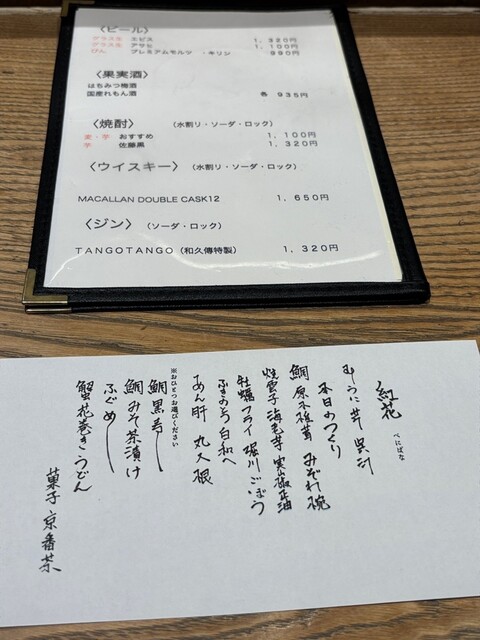 〈ビール〉
グラス生 ヱビス 1,320円
グラス生 アサヒ 1,100円
びん プレミアムモルツ ・キリン 990円
〈果実酒〉
はちみつ梅酒
国産れもん酒 各 935円
〈焼酎〉 （水割り・ソーダ・ロック）
麦・芋 おすすめ 1,100円
芋 佐藤黒 1,320円
〈ウイスキー〉（水割り・ソーダ・ロック）
MACALLAN DOUBLE CASK12 1,650円
〈ジン〉 （ソーダ・ロック）
TANGOTANGO（和久傳特製） 1,320円
紅花 べにばな
本日のつくり
鯛 原木椎茸 みぞれ椀
焼雲子 海老芋 実山椒正油
牡蠣フライ 堀川ごぼう
ふきのとう 白和へ
あん肝 丸大根
※おひとつお選びください
鯛 黒寿し
鯛みそ茶漬け
ふぐめし
蟹花巻きうどん
菓子 京番茶